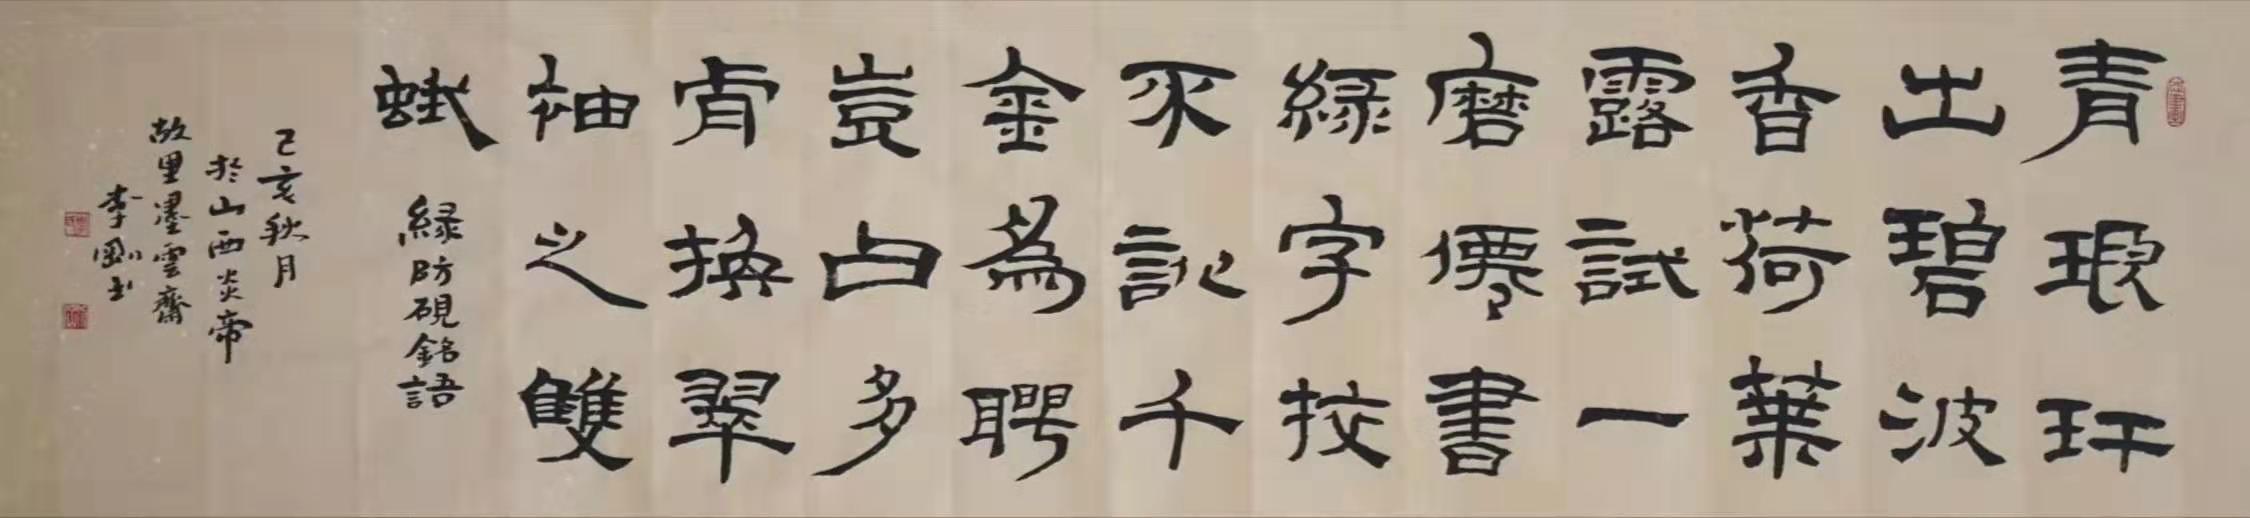 青琅玕
出碧波
香荷葉
露試一
磨僊書
綠字校
不訛千
金為聘
豈占多
肯換翠
袖之雙
蛾
緑防硯銘語
己亥秋月
於山西炎帝
故里墨雲齋
李剛书